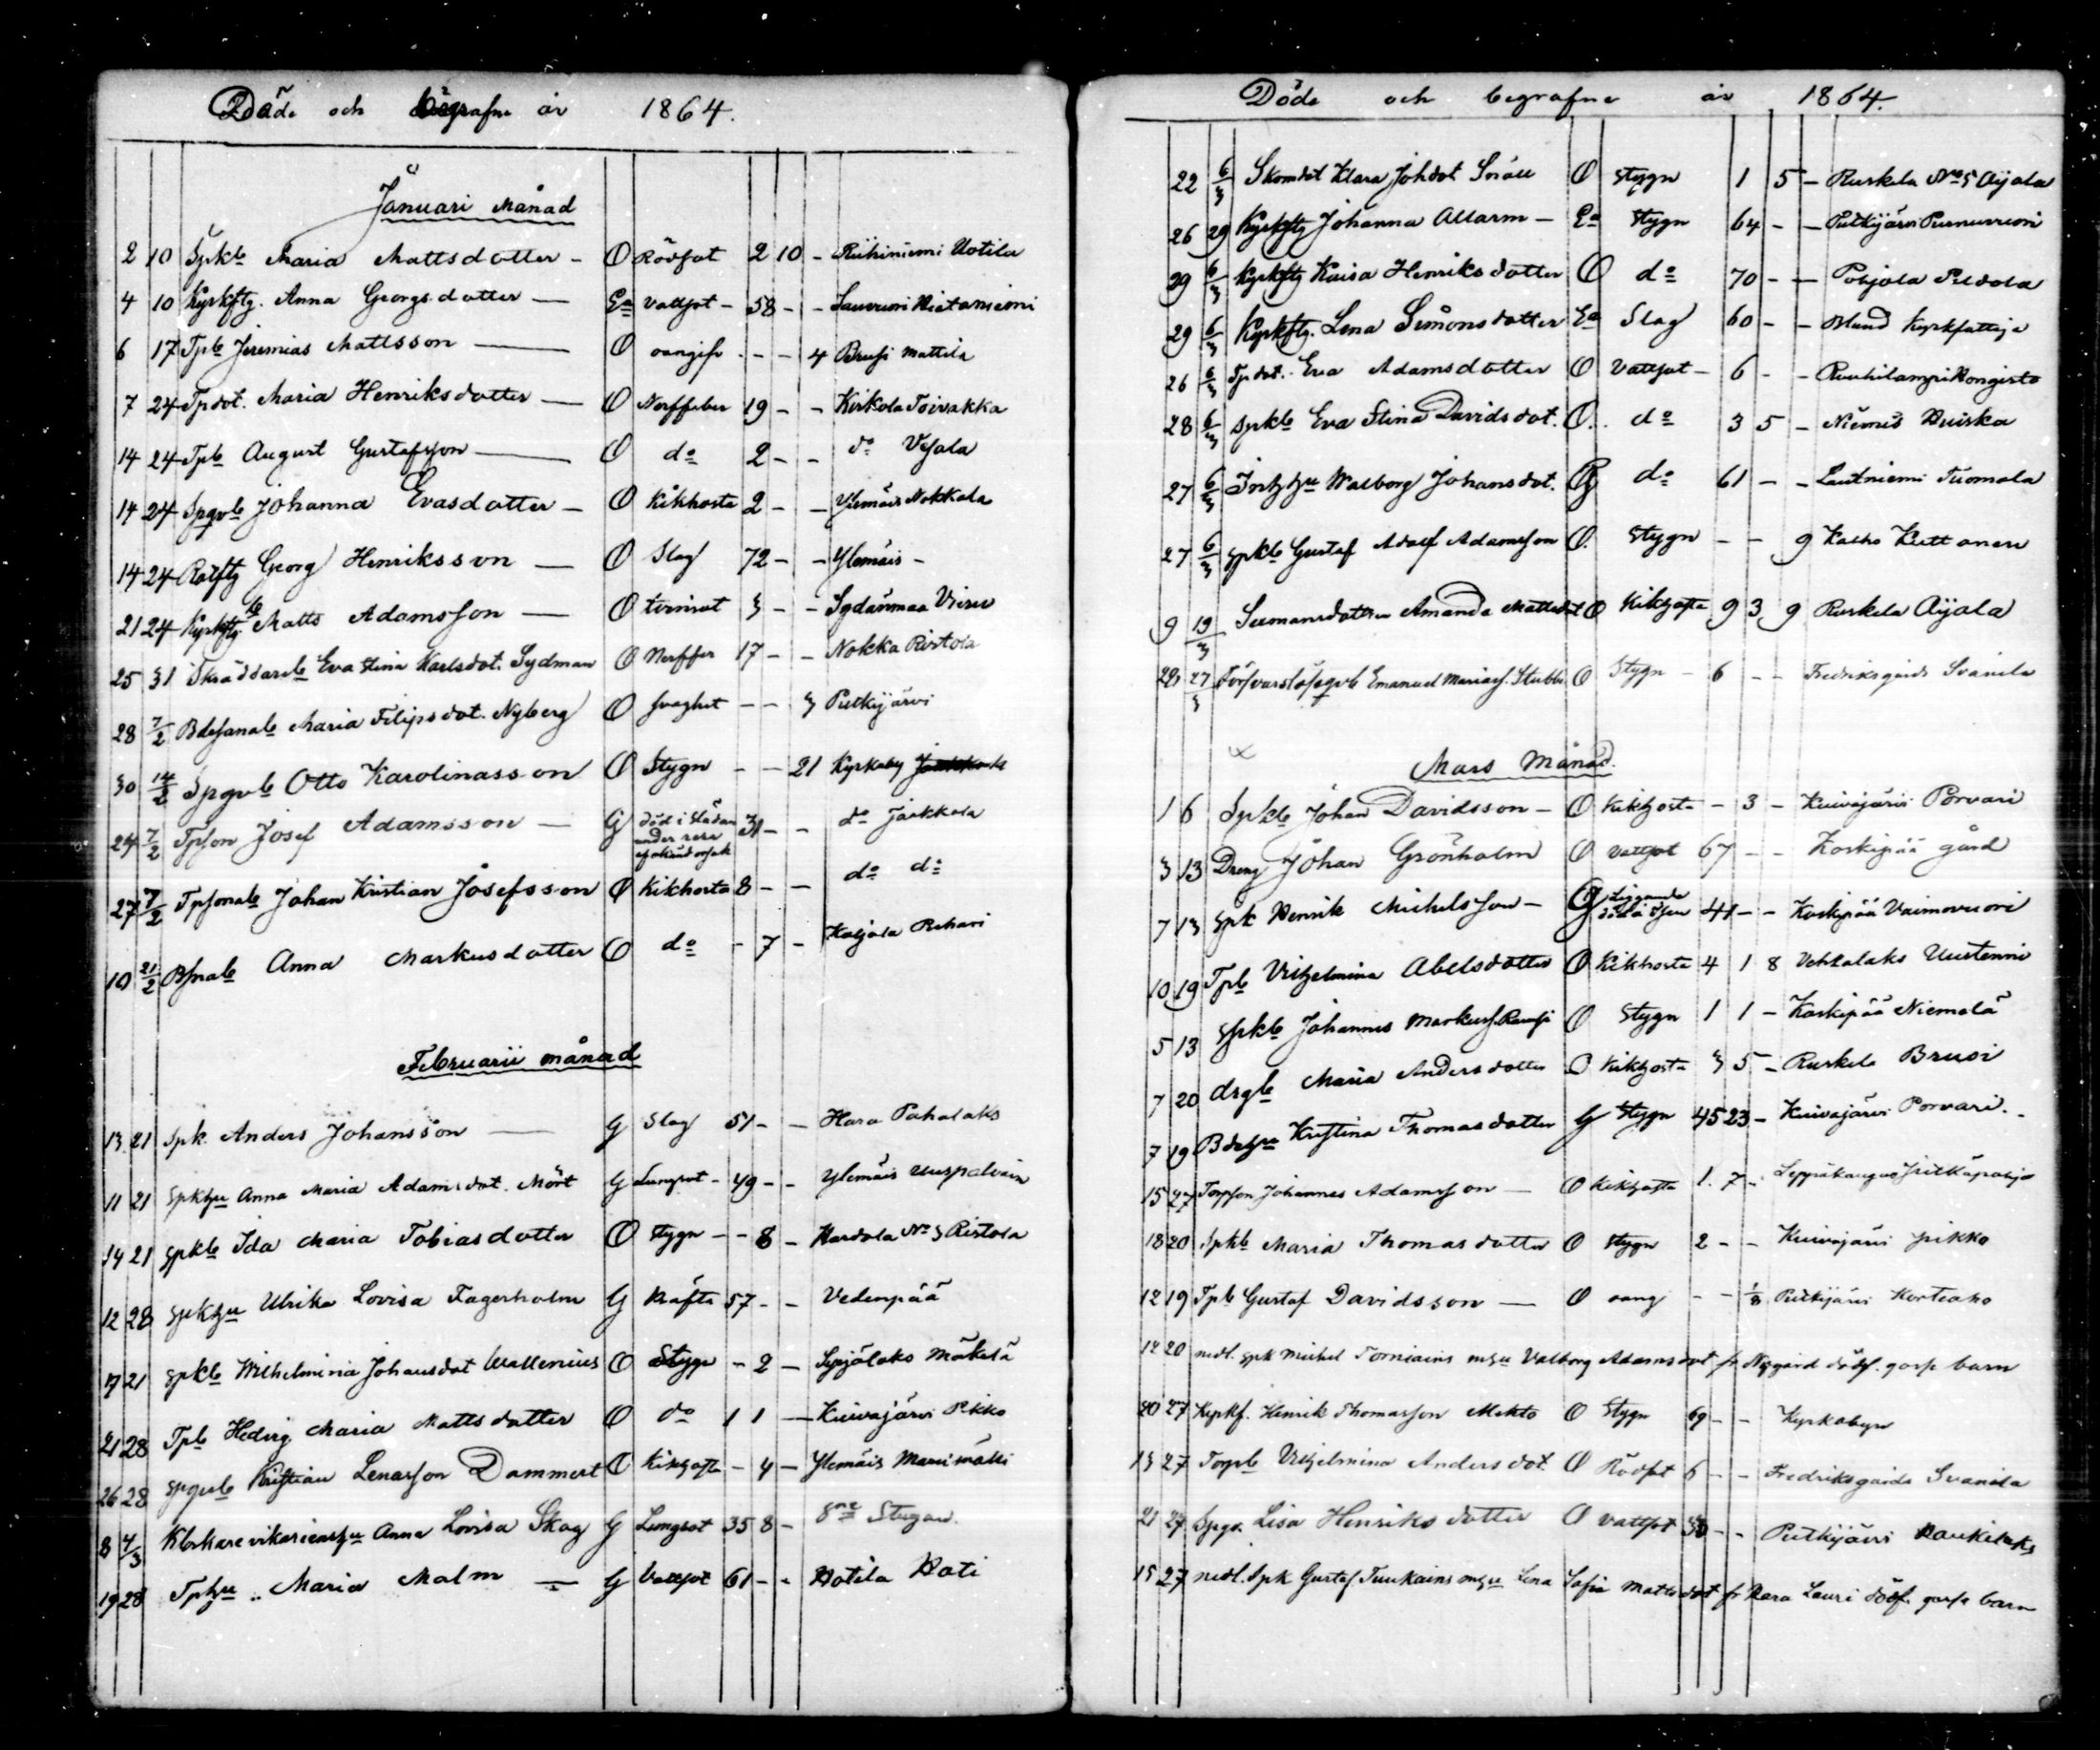 Döde och begrafne år 1864.
Januari månad
2 10 Spkb Maria Mattsdotter - O Rödsot 2 10 - Riihiniemi Uotila
4 10 Kyrkftg. Anna Georgsdotter — Ea vattsot - 58 - - Sauvuori Hietaniemi
6 17 Tpb Jeremias Mattsson — O oangifv - - 4 Brusi Mattila
7 24 Tpdot. Maria Henriksdotter — O Nerffeber 19 - - Kirkola Toivakka
14 24 Tpb August Gustafsson — O do 2 - - do Vesala
14 24 Spgvb Johanna Evasdotter - O Kikhosta 2 - - Ylemäis Nokkala
14 24 Rotftg Georg Henriksson — O Slag 72 - - Ylemäis -
21 24 Kyrkftg b Matts Adamsson — O tvinsot 3 - - Sydänmaa
25 31 Skräddareb Eva Stina Karlsdot. Sydman O Nerffer 17 - - Nokka Ristola
28 7/2 Maria Filipsdot. Nyberg O svaghet - - 3 Putkijärvi
30 14/2 Spgvb Otto Karolinasson O Stygn - - 21 Kyrkoby
24 7/2 Tpson Josef Adamsson — G död i slädan under resa 31 - - do Jaakkola
27 7/2 Tpsonab Johan Kristian Josefsson O Kikhosta 8 - - do do
10 21/2 Bsnab Anna Markusdotter O do - 7 -
Februarii månad
13 21 Spk. Anders Johansson — G Slag 51 - - Hara Pahalaks
11 21 Spkhu Anna Maria Adamsdot. Mört G Lungsot - 49 - - Ylemäis
14 21 Spkb Ida Maria Tobiasdotter O Stygn - - 8 - Kardola No 3 Ristola
12 28 Spkhu Ulrika Lovisa Fagerholm G Kräfta 57 - - Vedenpää
17 21 Spkb Wilhelmina Johansdot Wallenius O Stygn - 2 - Mäkelä
21 28 Tpb Hedvig Maria Mattsdotter O do 1 1 — Kuivajärvi Pikko
26 28 Spgvb Kristian Lenasson Dammert O Kikhosta - 4 - Ylemäis
8 4/3 Klockarevikariens hu Anna Lovisa Skog G Lungsot 35 8 - Stugan.
19 28 Tphu Maria Malm — G Vattsot 61 - - Uotila Hoti
Döde och begrafne år 1864.
22 6/3 Klara Johdot O Stygn 1 5 - Ruskela No 5 Aijala
26 29 Kyrkftg Johanna Allarm - Ea Stygn 64 - - Putkijärvi
29 6/3 Kyrkftg Kaisa Henriksdotter O do 70 - - Pohjola Peldola
29 6/3 Kyrkftg. Lena Simonsdotter Ea Slag 60 - - Bland Kyrkfattiga
26 6/3 Tpdot. Eva Adamsdotter O Vattsot - 6 - - Ruuhilampi Kongisto
28 6/3 Spkb Eva Stina Davidsdot. O. do 3 5 - Niemis Huiska
27 6/3 Walborg Johansdot. do 61 - - Lautniemi Tuomola
27 6/3 Spkb Gustaf Adolf Adamsson O. Stygn - - 9 Kalho Kuttanen
9 19/3 Amanda O Kikhosta 9 3 9 Ruskela Aijala
28 27/3 Försvarslösegvb Emanuel Mariass. Stubbe O Stygn - 6 - - Fredriksgårds Svanila
Mars Månad.
1 6 Spkb Johan Davidsson - O Kikhosta - 3 - Kuivajärvi Porvari
3 13 Dreng Johan Grönholm O Vattsot 67 - - Koskipää gård
7 13 Spk Henrik Michelsson - G 41 - - Koskipää Vaimovuori
10 19 Tpb Vilhelmina Abelsdotter O Kikhosta 4 1 8 Vehkalaks Uustenni
5 13 Spkb Johannes Markuss. O Stygn 1 1 - Koskipää Niemelä
7 20 drgb Maria Andersdotter O Kikhosta 3 5 - Ruskela Brusi
7 19 Kristina Thomasdotter G Stygn 45 23 - Kuivajärvi Porvari.
15 27 Torpson Johannes Adamsson — O Kikhosta 1. 7 - Leppäkangas Pitkäpohja
18 20 Spkb Maria Thomasdotter O Stygn 2 - - Kuivajärvi Pikko
12 19 Tpb Gustaf Davidsson — O oang - - 1/8 Putkijärvi Korteaho
12 20 nedl. Spk Michel Torniains m hu Valborg Adamsdot fr Nygård dödf. gosse barn
20 27 Kyrkf. Henrik Thomasson Mehto O Stygn 69 - - Kyrkobyn
13 27 Torpb Vilhelmina Andersdot. O Rödsot 6 - - Fredriksgårds Svanila
21 27 Spgv. Lisa Henriksdotter O Vattsot 38 - - Putkijärvi Haukilaks
15 27 nedl. Spk Gustaf Tuukains m hu Lena Sofia Mattsdot fr Hara Lauri dödf. gosse barn